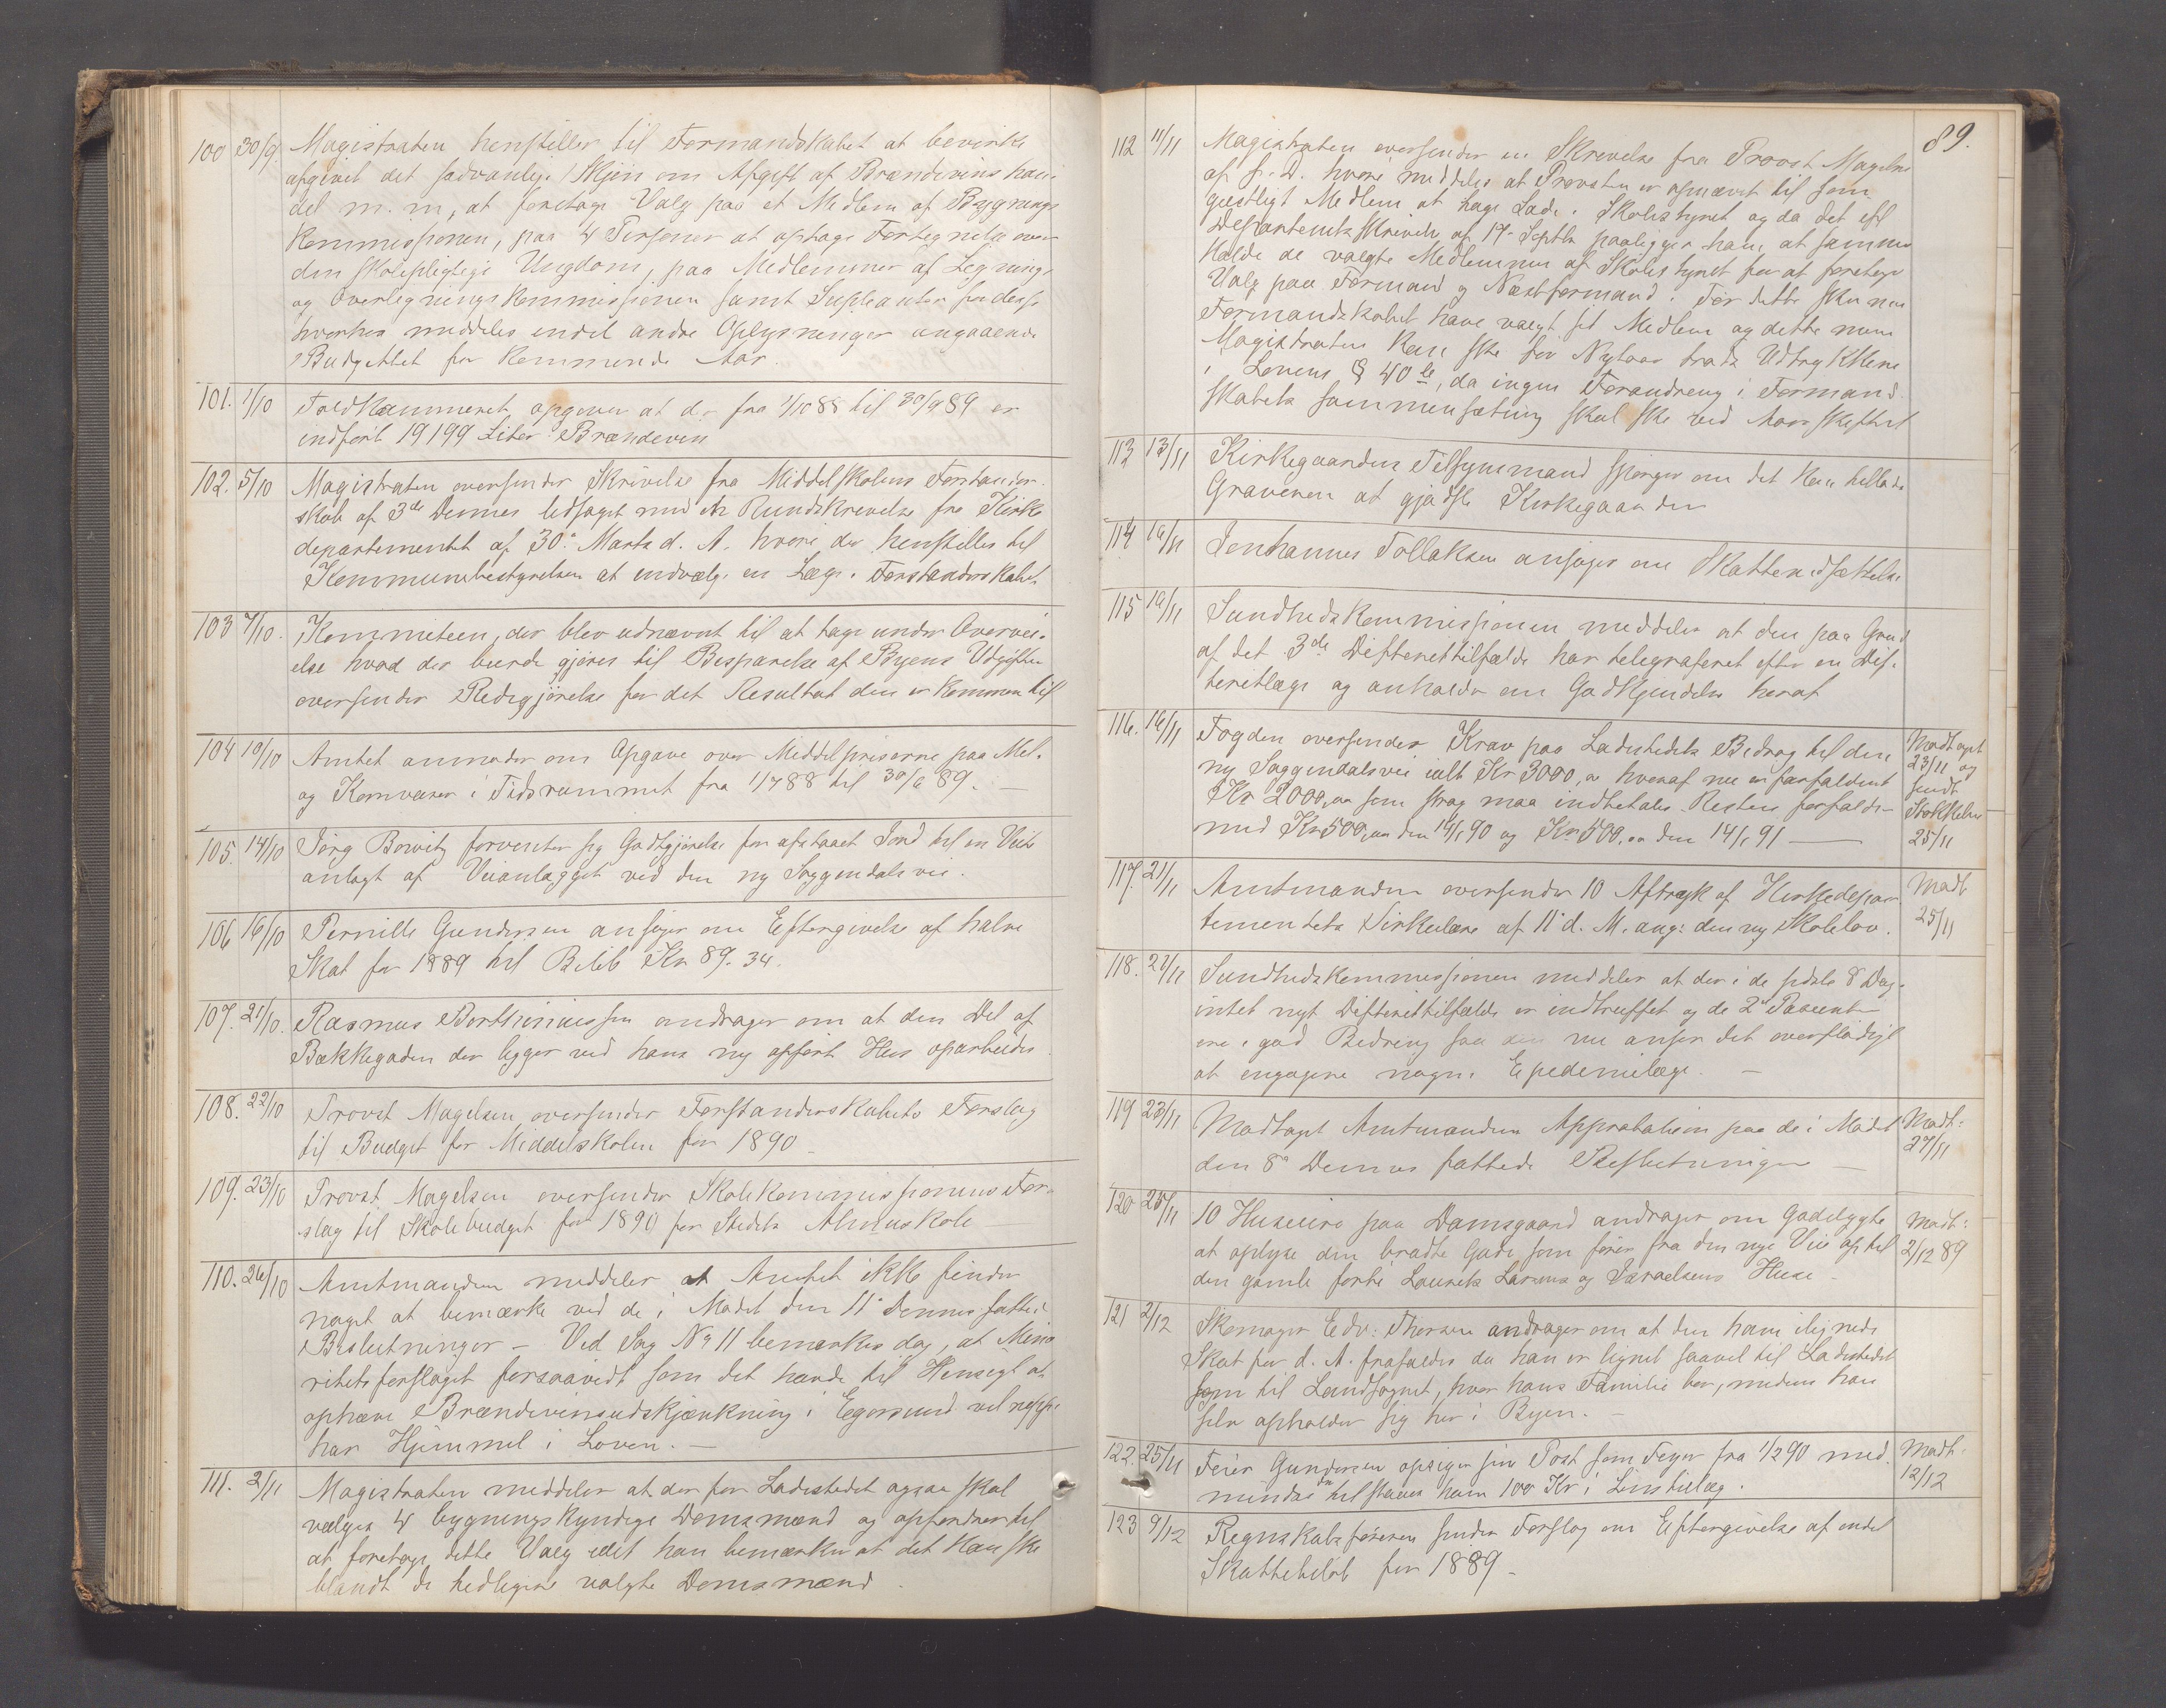 100 30/9 Magistraten henstiller til Formandskabet at bevirke
afgivet det sædvanlige Skjøn om Afgift af Brændevinshan-
del m. m, at foretage Valg paa et Medlem af Bygnings
Kommissionen, paa 4 Personer at optage Fortegnelse over
den skolepligtige Ungdom, paa Medlemmer af Legnings
og Overlegningskommissionen samt Supleanter for disse
hvorhos meddeles endel andre Oplysninger angaaende
Budgettet for kommende Aar.
101. 1/10 Toldkammeret opgiver at der fra 1/10 88 til 30/9 89 er
indført 19199 Liter Brændevin
102. 5/10 Magistraten oversender Skrivelse fra Middelskolens Forstander-
skab af 3de Dennes ledsaget med en Rundskrivelse fra Kirke
departementet af 30. Marts d. A. hvori der henstilles til
Kommunebestyrelsen at indvælge en Læge i Forstanderskabet.
103 7/10. Kommiteen, der blev udnævnt til at tage under Overvei-
else hvad der burde gjøres til Besparelse af Byens Udgifter
oversender Redegjørelse for det Resultat den er kommen til
104 10/10 Amtet anmoder om Opgave over Middelpriserne paa Mel-
og Kornvarer i Tidsrummet fra 1/7 88 til 30/6 89. —
105. 14/10 Jørg Bowitz forventer sig Godtgjørelse for afstaaet Jord til en Vei
anlagt af Veianlægget ved den ny Soggendalsvei.
106 16/10 Pernille Gundersen ansøger om Eftergivelse af halve
Skat for 1889 til Beløb Kr 89. 34.
107. 21/10. Rasmus Berthiniussen andrager om at den Del af
Bækkegaden der ligger ved hans ny opført Hus oparbeides
108. 22/10 Provst Magelsen oversender Forstanderskabets Forslag
til Budget for Middelskolen for 1890 —
109. 23/10 Provst Magelsen oversender Skolekommissionens For-
slag til Skolebudget for 1890 for Stedets Almueskole
110. 26/10 Amtmanden meddeler at Amtet ikke finder
noget at bemærke ved de i Mødet den 11' Dennes fattede
Beslutninger — Ved Sag No 11 bemærkes dog, at Mino
ritetsforslaget forsaavidt som det havde til Hensigt at
ophæve Brændevinsudskjænkning i Egersund vel neppe
har Hjemmel i Loven. —
111. 2/11 Magistraten meddeler at der for Ladestedet ogsaa skal
vælges 4 bygningskyndige Domsmænd og opfordrer til
at foretage dette Valg idet han bemærker at det kan ske
blandt de tidligere valgte Domsmænd.
89.
112 11/11 Magistraten oversender en Skrivelse fra Provst Magelsen
af s. D. hvori meddeles at Provsten er opnævnt til som
geistligt Medlem at tage Sæde i Skolestyret og da det efter
Departements Skrivelse af 17. Septbr paaligger ham at sammen
kalde de valgte Medlemmer af Skolestyret for at foretage
Valg paa Formand og Næstformand. Før dette sker maa
Formandskabet have valgt sit Medlem og dette mener
Magistraten kan ske før Nytaar trods Udtrykkene
i Lovens § 40 da ingen Forandring i Formand-
skabets Sammensætning skal ske ved Aarsskiftet
113 13/11 Kirkegaardens Tilsynsmand spørger om det
Graveren at gjødsle Kirkegaarden
114 16/11 Tollaksen ansøger om Skattenedsættelse
115 16/11 Sundhedskommissionen meddeler at den paa Grund
af det 3de Difterittilfælde har telegraferet efter en Dif-
teritlæge og anholder om Godkjendelse heraf
116. 16/11 Fogden oversender Krav paa Ladestedets Bidrag til den
ny Soggendalsvei ialt Kr 3000,00 hvoraf nu er forfaldent
Kr 2000,00 som strax maa indbetales. Resten forfalder
med Kr 500,00 den 14/1 90 og Kr 500,00 den 14/1 91 —
Modtaget
23/11 og
sendt
25/11
117. 21/11 Amtmanden oversender 10 Aftryk af Kirkedepar-
tementets Sirkulære af 11' d. M. ang: den ny Skolelov.
Modt
25/11
118. 22/11 Sundhedskommissionen meddeler at der i de sidste 8 Dage
intet nyt Difterittilfælde er indtruffet og de 2 Pasienter
ere i god Bedring saa den nu anser det overflødigt
at engagere nogen Epedemilæge. —
119 23/11 Modtaget Amtmandens Approbation paa de i Mødet
den 8' Dennes fattede Beslutninger —
Modt:
27/11
120 25/11 10 Huseiere paa Damsgaard andrager om Gadelygte
at oplyse den bratte Gade som fører fra den nye Vei op til
den gamle forbi Laurits Larsens og Israelsens Huse —
Modt:
2/12 89
121 2/12 Skomager Edv: Thorsen andrager om at den ham ilignede
Skat for d. A. frafaldes da han er lignet saavel til Ladestedet
som til Landsognet, hvor hans Familie bor, medens han
selv opholder sig her i Byen. —
122. 25/11 Feier Gundersen opsiger sin Post som Feger fra 1/2 90 med
mindre der tilstaaes ham 100 Kr i Løntillæg.
Modt.
12/12
123 9/12 Regnskabsføreren sender Forslag om Eftergivelse af endel
Skattebeløb for 1889 —